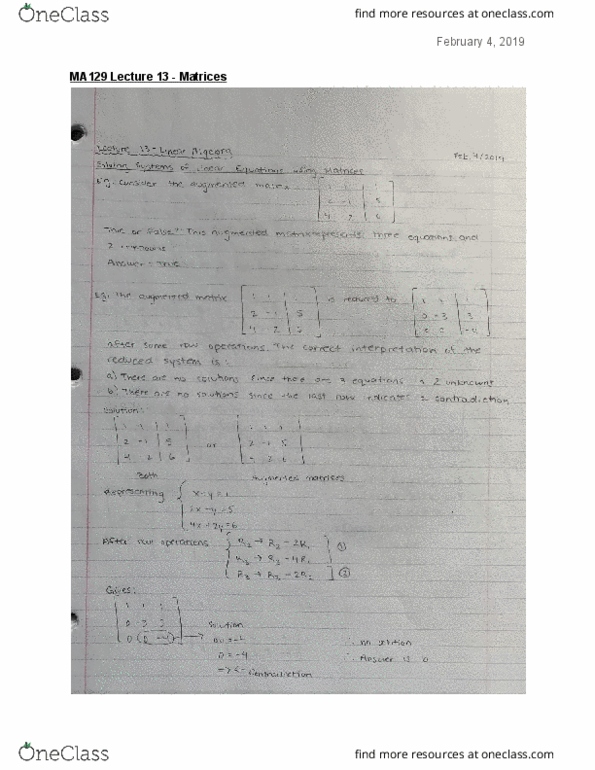 OneClass
find more resources at oneclass.com
February 4, 2019
MA129 Lecture 13 - Matrices
Lecture 13 - Linear Algebra
Feb. 4/2019
Solving Systems of Linear Equations using Matrices
Eg. Consider the augmented matrix
4 2 6
True or False? This augmented matrix represents three equations and
2
Answer: True
Eg. The augmented matrix is reduced to
2 -1 5
after some row operations. The correct interpretation of the
reduced system is:
a) There are no solutions since there are 3 equations & 2 unknowns
b) There are no solutions since the last row indicates a contradiction
Solution:
2 -1 5 or
4 2 6
Both augmented matrices
Representing
2x - y = 5
4x + 2y = 6
After row operations R2 → R2 - 2R1
R3 → R3 - 4R1 ①
R3 → R3 - 2R2 ②
Gives:
Solution
0 = -4 ∴ no solution
∴ Answer is b
contradiction
OneClass
find more resources at oneclass.com